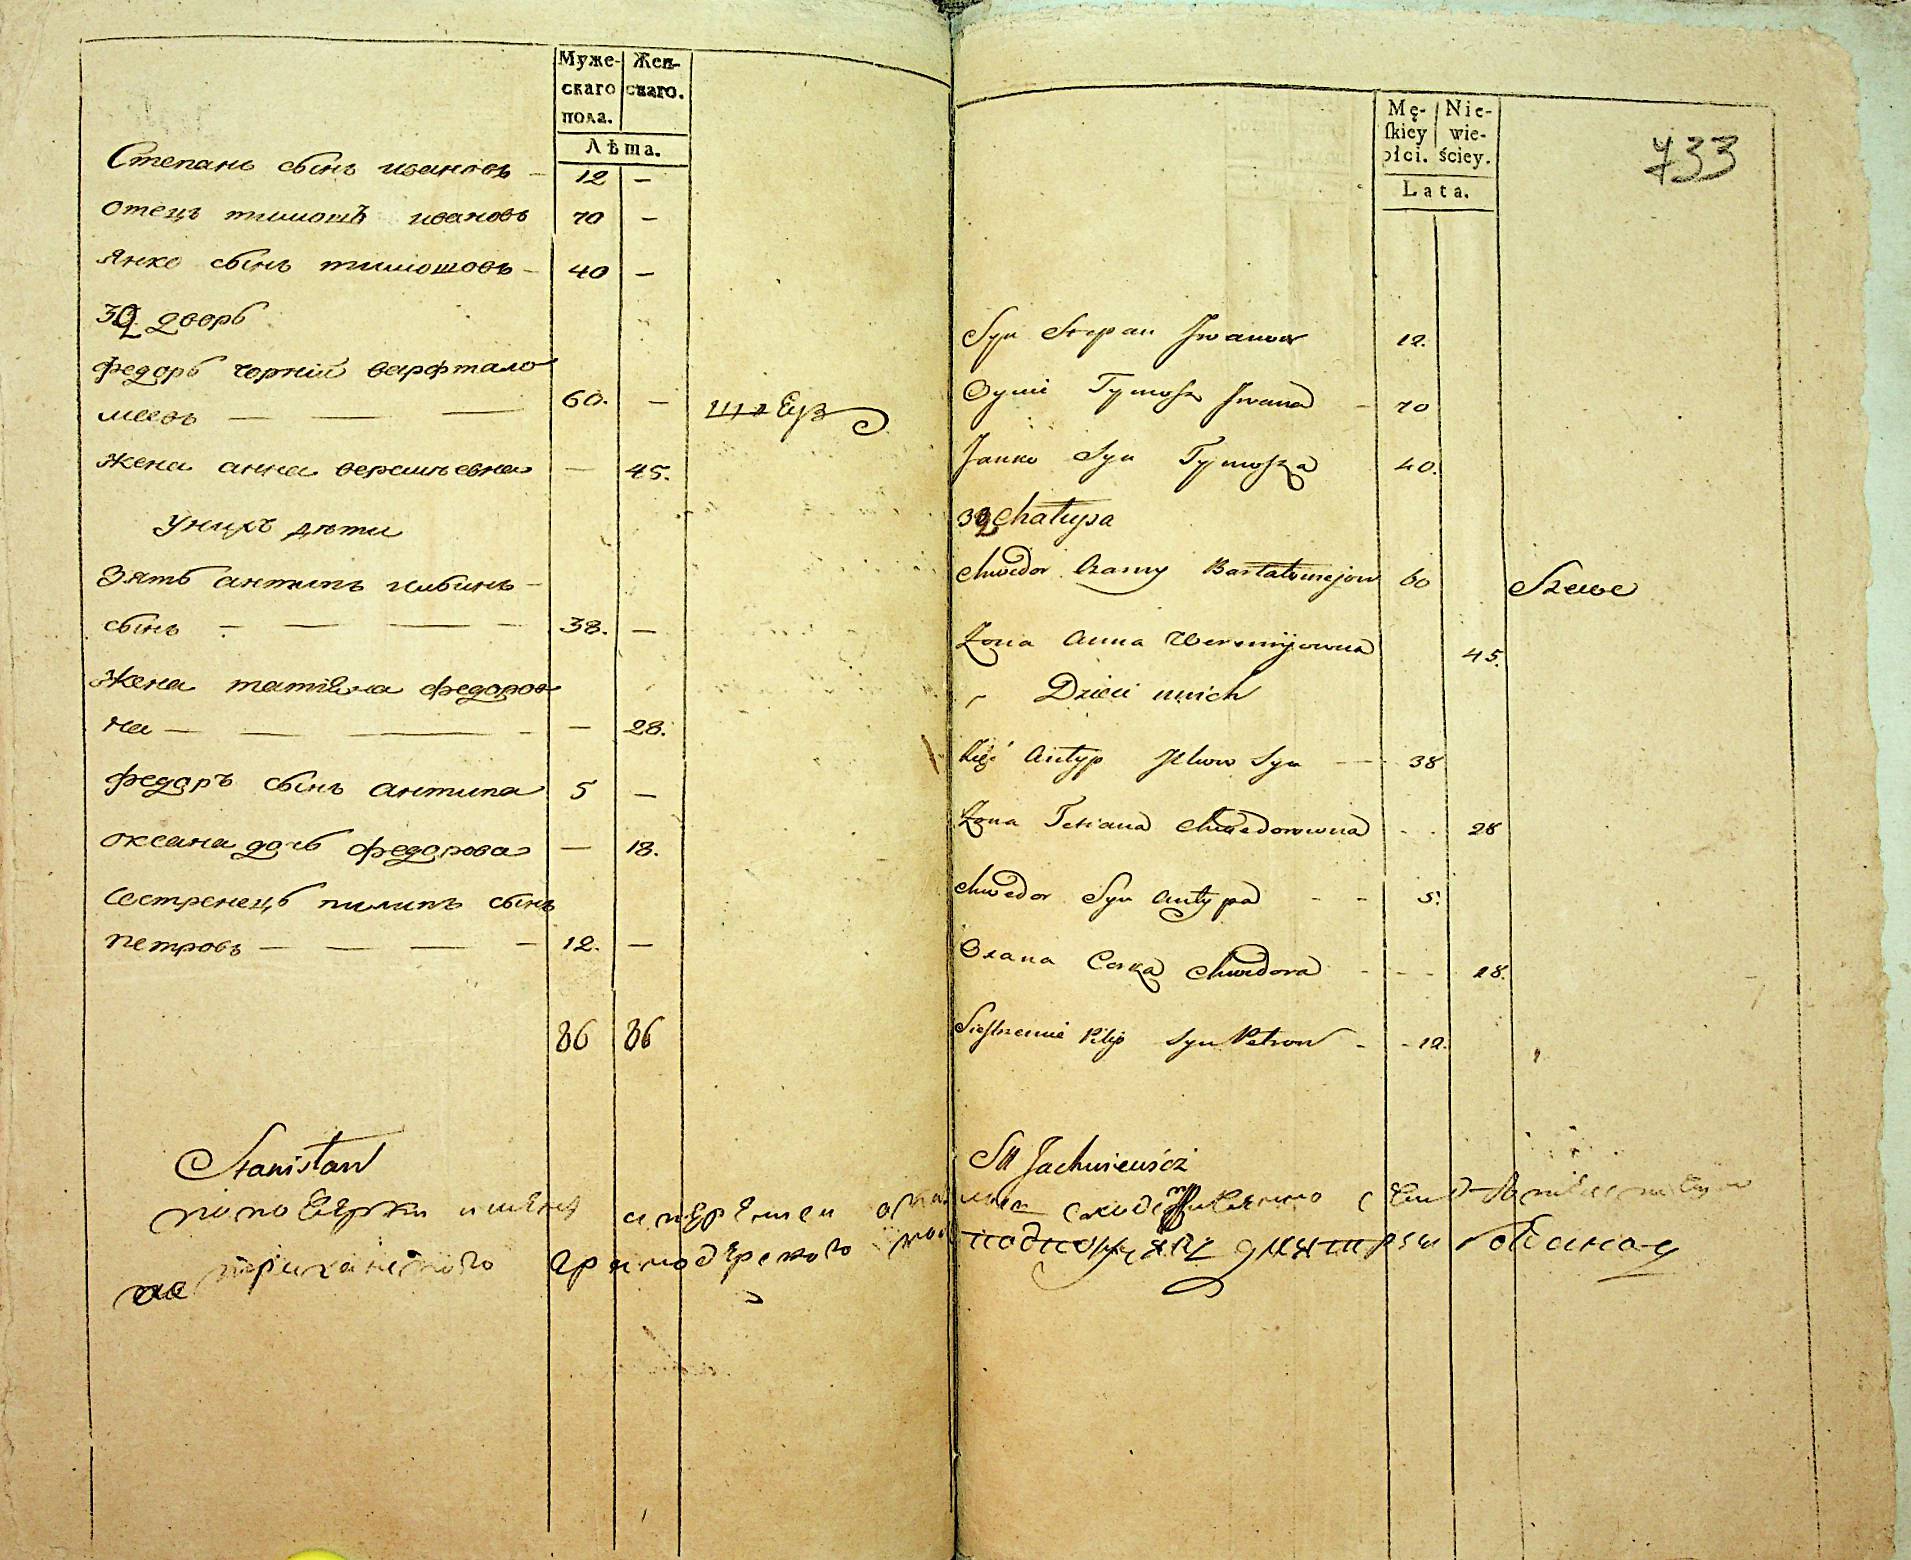 Муже- Жен-
скаго скаго.
пола.
Лѣта.
Степанъ сынъ ивановъ - 12 —
отецъ тимошъ ивановъ 70 —
янко сынъ тимошовъ - 40 —
32 дворъ
федоръ чорній варфтало
меевъ — — — 60. — швецъ
жена анна веремѣевна — 45.
у нихъ дѣти
зять антипъ -
сынъ — — — 38. —
жена татіяна федоров
на — — — — 28.
федоръ сынъ антипа 5 —
оксана дочь федорова — 18.
сестренецъ пилипъ сынъ
петровъ — — — 12. —
86 86
Stanisław
по поверки
гренодерского
Mę- Nie-
ſkiey wie-
płci. ściey.
Lata.
733
Syn Stepan Iwanow 12.
Oyciec Tymosz Iwana - 70
Janko Syn Tymosza 40.
32 chałupa
Chwedor Czarny Bartałomejow 60 Szewc
Żona Anna Weremijowna 45.
Dzieci u nich
Zięć Antyp Syn - - 38
Żona Tetiana Chwedorowna - - 28
Chwedor Syn Antypa - - 5.
Oxana Corka Chwedora - - - 18.
Siestrzeniec Pilip Syn Petrow - - 12.
Jachniewicz